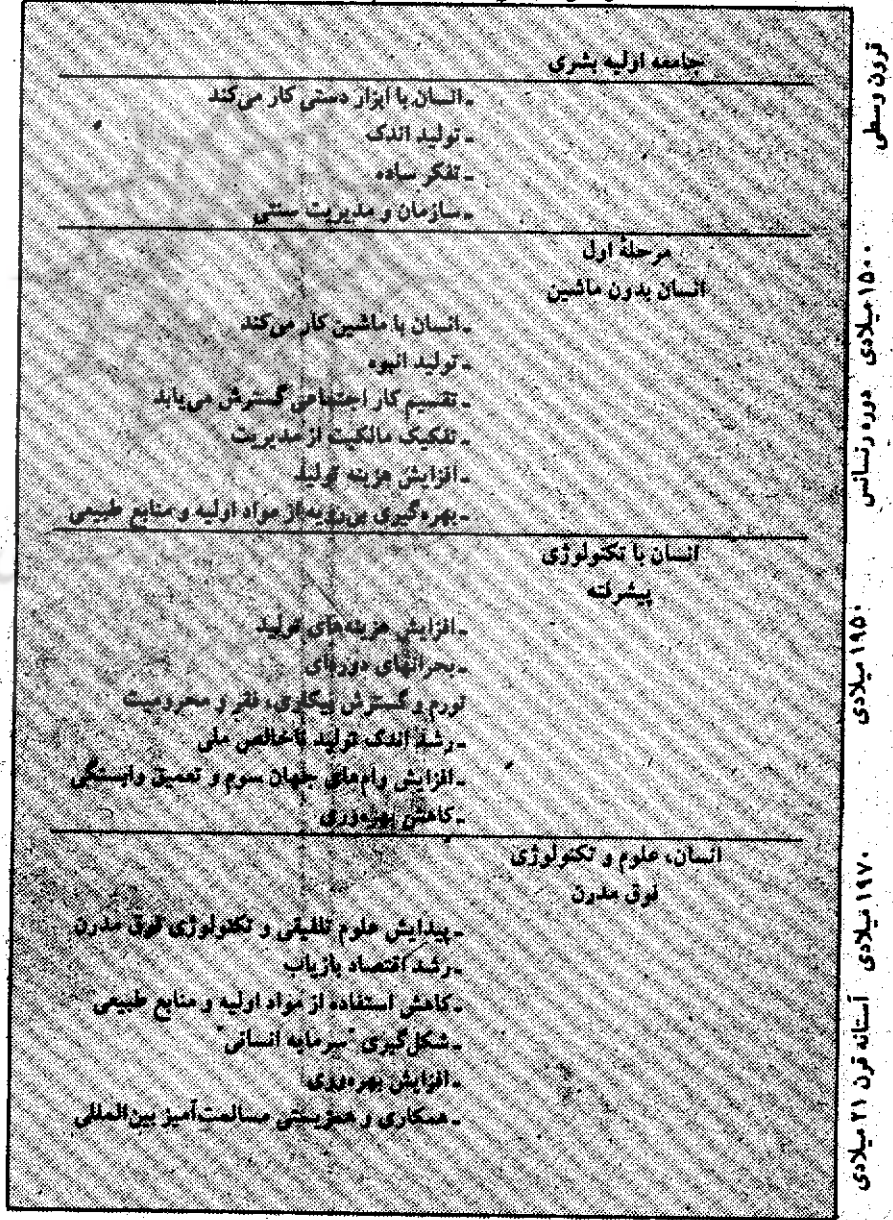 جامعه اولیه بشری
ـ انسان با ابزار دستی کار می‌کند
ـ تولید اندک
ـ تفکر ساده
ـ سازمان و مدیریت سنتی
مرحلهٔ اول
انسان بدون ماشین
ـ انسان با ماشین کار می‌کند
ـ تولید انبوه
ـ تقسیم کار اجتماعی گسترش می‌یابد
ـ تفکیک مالکیت از مدیریت
ـ افزایش هزینه تولید
ـ بهره‌گیری بی‌رویه از مواد اولیه و منابع طبیعی
انسان با تکنولوژی
پیشرفته
ـ افزایش هزینه‌های تولید
ـ بحرانهای دوره‌ای
تورم و گسترش بیکاری، فقر و محرومیت
ـ رشد اندک تولید ناخالص ملی
ـ افزایش وام‌های جهان سوم و تعمیق وابستگی
ـ کاهش بهره‌وری
انسان، علوم و تکنولوژی
فوق مدرن
ـ پیدایش علوم تلفیقی و تکنولوژی فوق مدرن
ـ رشد اقتصاد بازیاب
ـ کاهش استفاده از مواد اولیه و منابع طبیعی
ـ شکل‌گیری "سرمایه انسانی"
ـ افزایش بهره‌وری
ـ همکاری و همزیستی مسالمت‌آمیز بین‌المللی
قرون وسطی
۱۵۰۰ میلادی دوره رنسانس
۱۹۵۰ میلادی
۱۹۷۰ میلادی آستانه قرن ۲۱ میلادی